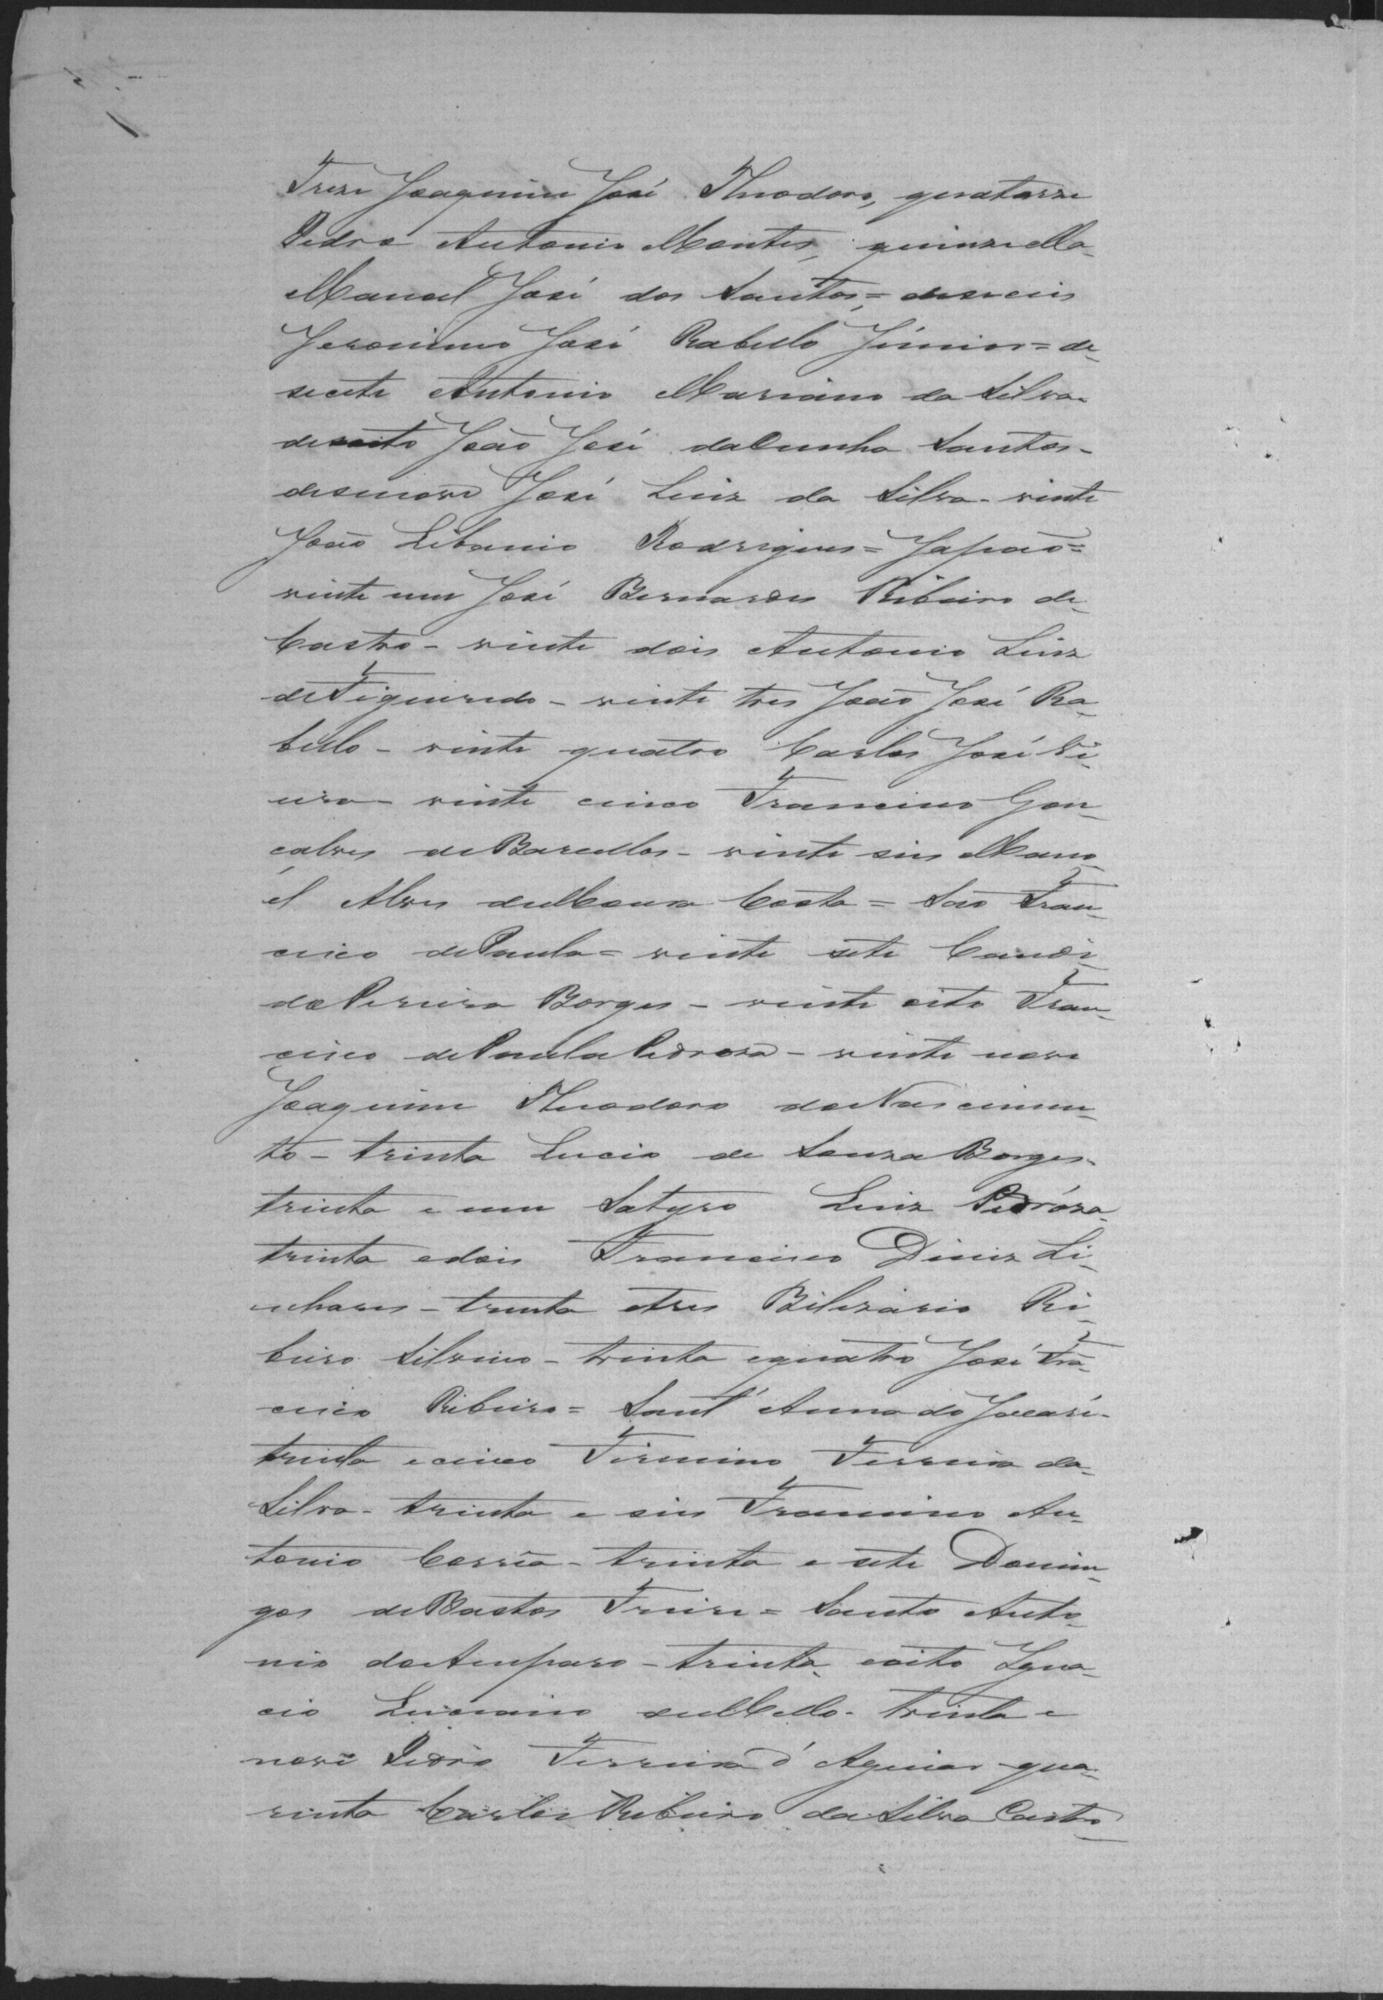 Treze Joaquim José Theodoro, quatorze
Pedro Antonio Montes, quinze Ma-
Manoel José dos Santos = deseseis
Jeronimo José Rabello Júnior = de-
secete Antonio Marianno da Silva -
desoito João José da Cunha Santos -
desenove José Luiz da Silva - vinte
João Libanio Rodrigues = Japão =
vinte um José Bernardes Ribeiro de
Castro - vinte dois Antonio Luiz
de Figueiredo - vinte tres João José Ra-
bello - vinte quatro Carlos José Vi-
eira - vinte cinco Francisco Gon-
calves de Barcellos - vinte seis Mano-
el Alves de Moura Costa = São Fran-
cisco de Paula = vinte sete Candi-
do Pereira Borges - vinte oito Fran-
cisco de Paula Pedroza - vinte nove
Joaquim Theodoro do Nascimen-
to - trinta Lucio de Souza Borges -
trinta e um Satyro Luiz Pedróza -
trinta e dois Francisco Diniz Li-
nhares - trinta e tres Bilizario Ri-
beiro Silvino - trinta e quatro José Fra-
cisco Ribeiro = Sant'Anna do Jacaré -
trinta e cinco Firmino Ferreira da
Silva - trinta e seis Francisco An-
tonio Corrêa - trinta e sete Domin-
gos de Bastos Freire = Santo Anto-
nio do Amparo - trinta e oito Igna-
cio Luciano de Mello - trinta e
nove Pedro Ferreira d'Aguiar - qua-
renta Carlos Ribeiro da Silva Castro